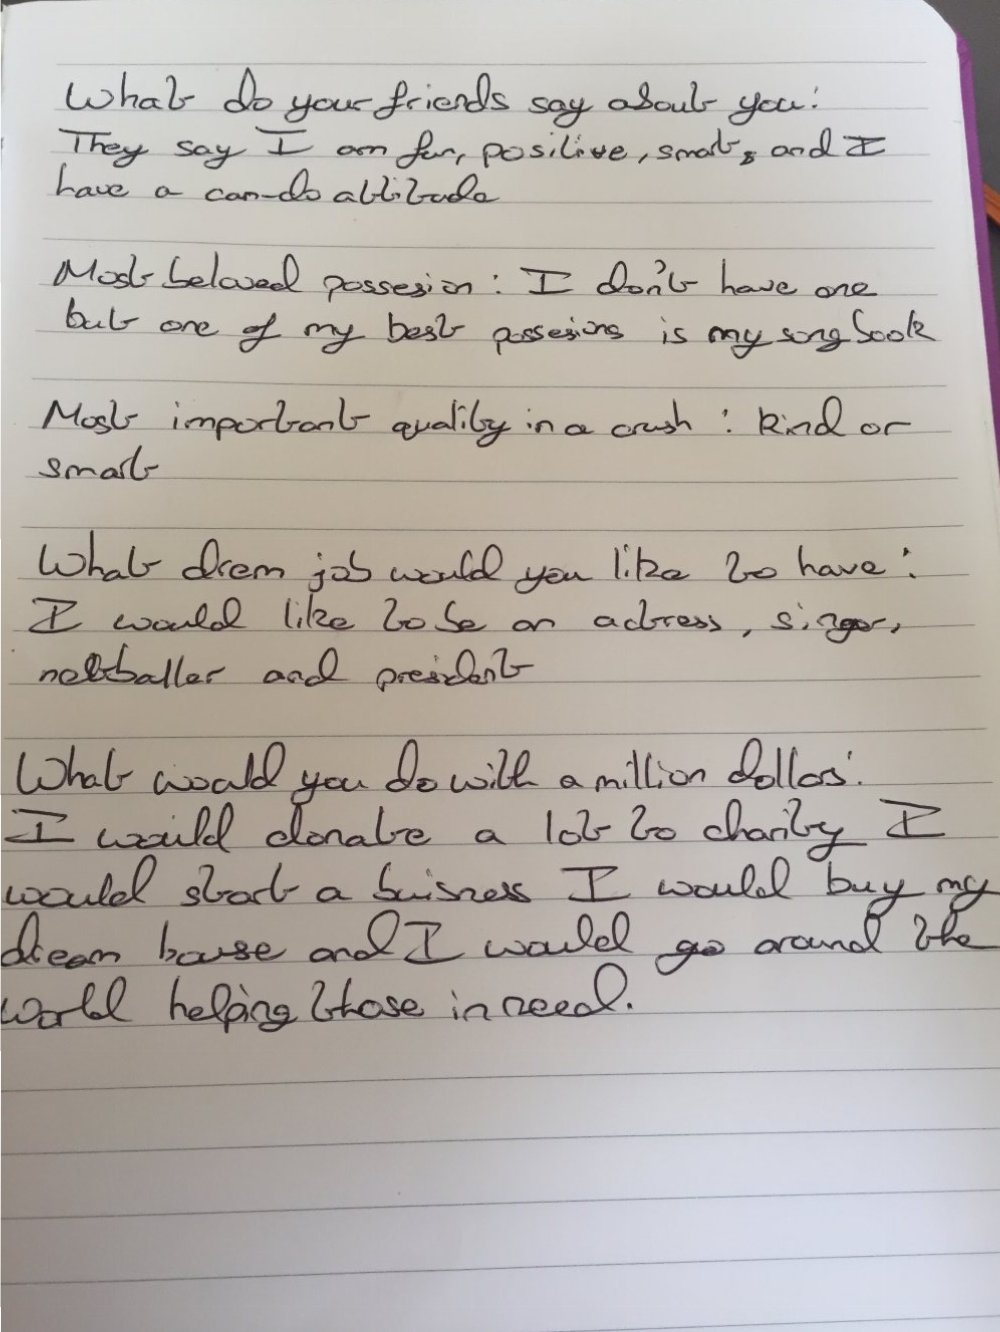 What do your friends say about you:
They say I am fun, positive, smart, and I
have a can-do attitude
Most beloved possesion: I don't have one
but one of my best possesions is my song book
Most important quality in a crush: kind or
smart
What drem job would you like to have:
I would like to be an actress, singer,
netballer and president
What would you do with a million dollars:
I would donate a lot to charity I
would start a buisness I would buy my
dream house and I would go around the
world helping those in need.